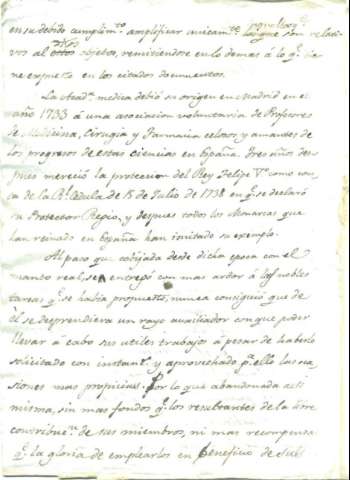 en su debido cumplim.to amplificar unicam.te aquellos q.e
los que son relati-
vos al dhos objeto, remitiendose en lo demas á lo q.e tie-
ne expuesto en los citados documentos.
La Acad.a medica debió su origen en Madrid en el
año 1733 á una asociacion voluntaria de Profesores
de Medicina, Cirugia y Farmacia celosos, y amantes de
los progresos de estas ciencias en España. Tres años des-
pues mereció la proteccion del Rey Felipe V.o como cons-
ta de la R.l Cedula de 15 de Julio de 1738 en q.e se declaró
su Protector Regio, y despues todos los Monarcas que
han reinado en España han imitado su exemplo.
Al paso que cobijada desde dicha epoca con el
manto real, se entregó con mas ardor á las nobles
tareas q.e se habia propuesto, nunca consiguió que de
él se desprendiera un rayo auxiliador con que poder
llevar á cabo sus utiles trabajos á pesar de haberlo
solicitado con instanc.a y aprovechado p.a ello las oca-
siones mas propicias. Por lo que abandonada a si
misma, sin mas fondos q.e los resultantes de la
contribuc.n de sus miembros, ni mas recompensa
q.e la gloria de emplearlos en beneficio de